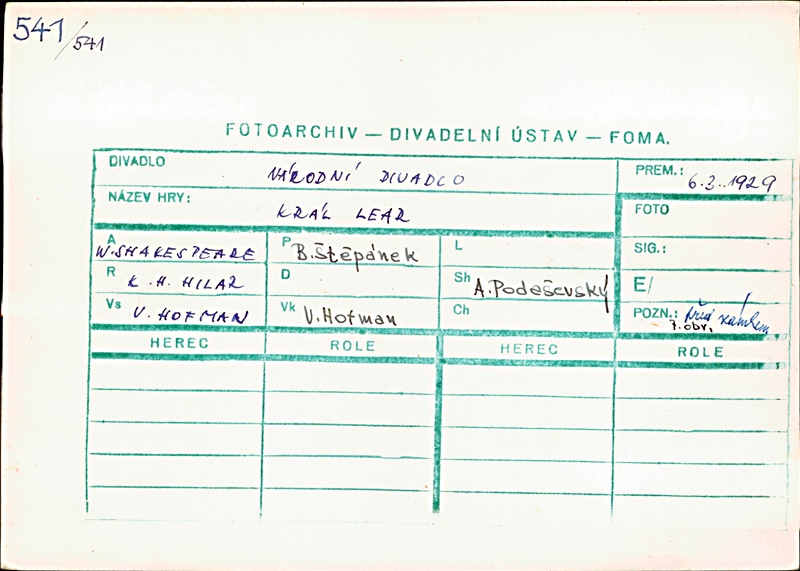 541/541
FOTOARCHIV — DIVADELNÍ ÚSTAV — FOMA.
DIVADLO NÁRODNÍ DIVADLO
PREM.: 6.3.1929
NÁZEV HRY: KRÁL LEAR
FOTO
A W.SHAKESPEARE
P B.Štěpánek
L
SIG.:
R K.H.HILAR
D
Sh A.Podeševský
E/
Vs V.HOFMAN
Vk V.Hofman
Ch
POZN.: před zámkem
7.obr.
HEREC ROLE HEREC ROLE